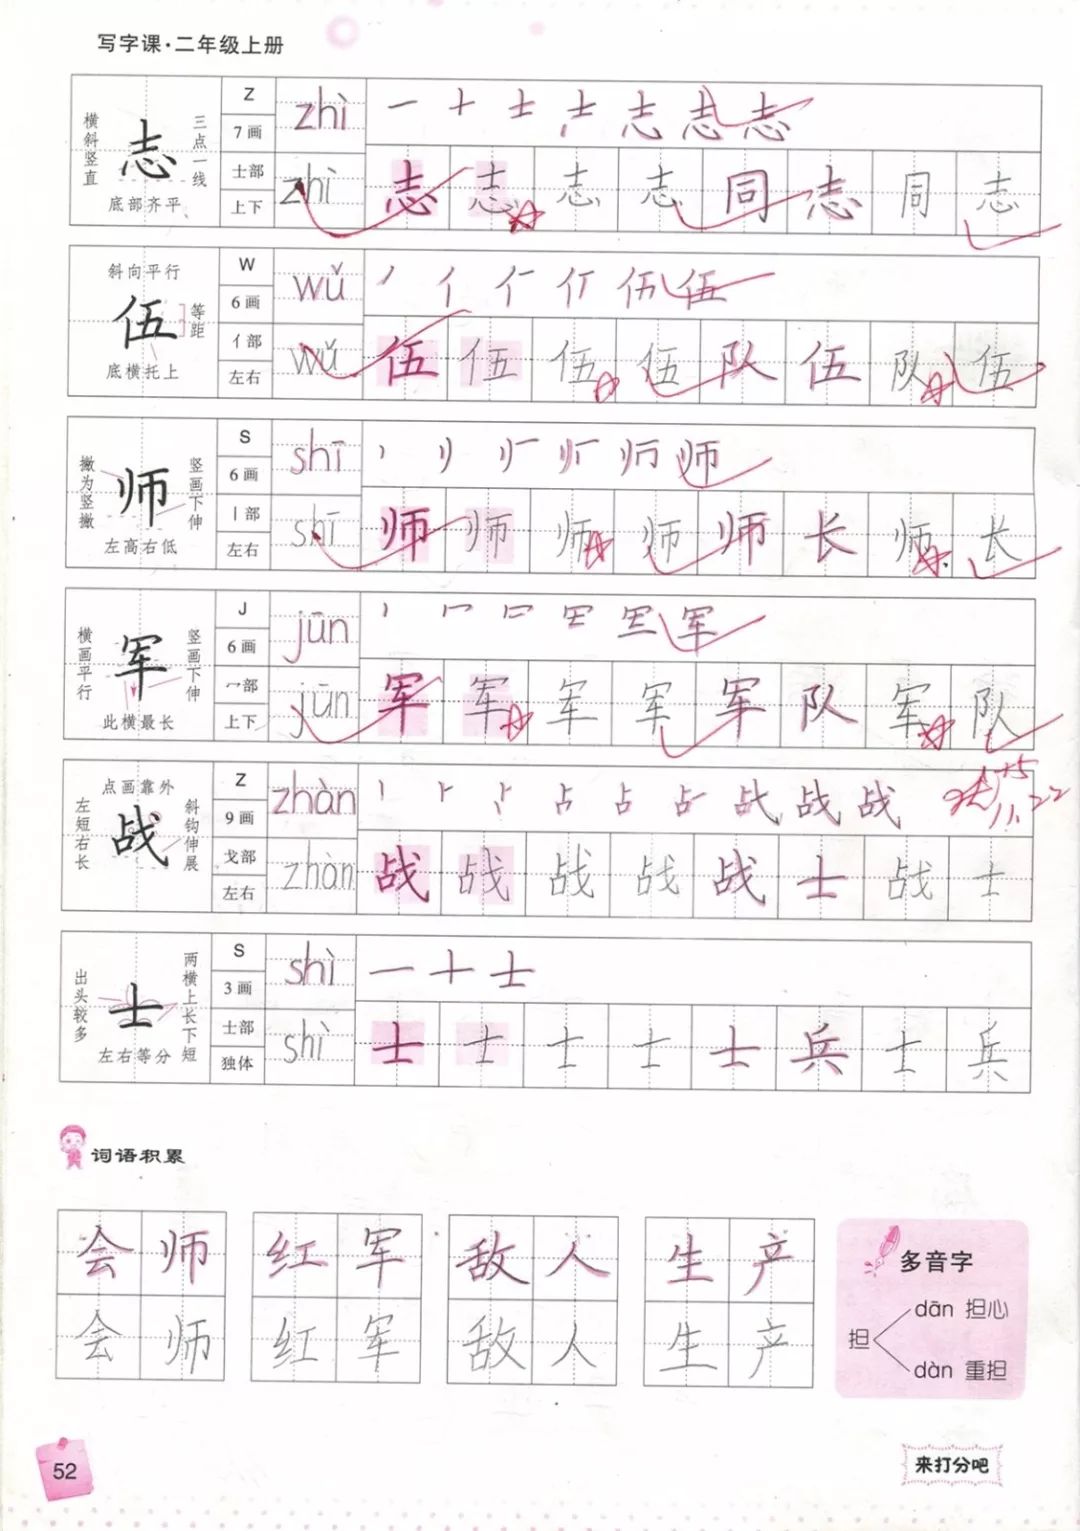 写字课·二年级上册
横斜竖直 志 三点一线
底部齐平
Z
7画
士部
上下
zhì
zhì
一 十 士 志 志 志
志 志 志 志 同 志 同 志
斜向平行
伍 等距
底横托上
W
6画
亻部
左右
wǔ
wǔ
丿 亻 仁 仃 伍 伍
伍 伍 伍 伍 队 伍 队 伍
撇为竖撇 师 竖画下伸
左高右低
S
6画
丨部
左右
shī
shī
师 师
师 师 师 师 师 长 师 长
横画平行 军 竖画下伸
此横最长
J
6画
冖部
上下
jūn
jūn
军
军 军 军 军 军 队 军 队
点画靠外
左短右长 战 斜钩伸展
Z
9画
戈部
左右
zhàn
zhàn
丨 占 占 占 战 战 战
战 战 战 战 战 士 战 士
11.22
出头较多 士 两横上长下短
左右等分
S
3画
士部
独体
shì
shì
一 十 士
士 士 士 士 士 兵 士 兵
词语积累
会师 红军 敌人 生产
会师 红军 敌人 生产
多音字
担
dān 担心
dàn 重担
52
来打分吧